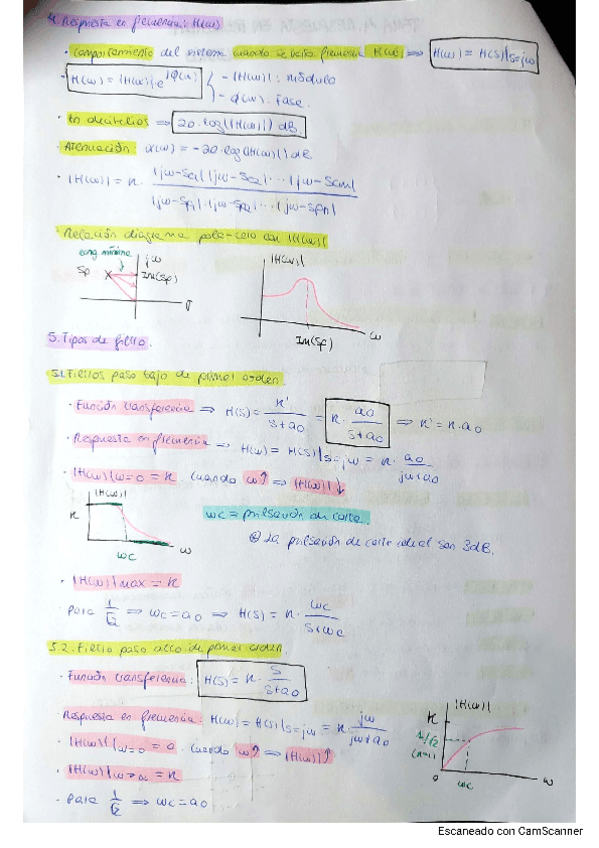 4. Respuesta en frecuencia: H(ω)
· Comportamiento del sistema cuando se varía frecuencia H(ω) ⟹ H(ω) = H(s)|s=jω
· H(ω) = |H(ω)|·e^jφ(ω) { - |H(ω)|: módulo
- φ(ω): Fase.
· En decibelios ⟹ 20·log(|H(ω)|) dB.
· Atenuación: α(ω) = -20·log(|H(ω)|) dB
· |H(ω)| = K· |jω-Sc1|·|jω-Sc2|···|jω-Scm| / |jω-Sp1|·|jω-Sp2|···|jω-Spn|
· Relación diagrama polo-cero con |H(ω)|
long mínima
jω
Sp
Im(Sp)
σ
|H(ω)|
ω
Im(Sp)
5. Tipos de filtro.
5.1. Filtros paso bajo de primer orden.
· Función transferencia ⟹ H(s) = K' / s+a0 = K· a0 / s+a0 ⟹ K' = K·a0
· Respuesta en frecuencia ⟹ H(ω) = H(s)|s=jω = K· a0 / jω+a0
· |H(ω)|ω=0 = K. Cuando ω↑ ⟹ |H(ω)|↓
|H(ω)|
K
ωc
ω
ωc = pulsación de corte.
La pulsación de corte ideal son 3dB.
· |H(ω)|max = K
· Para 1/√2 ⟹ ωc = a0 ⟹ H(s) = K· ωc / s+ωc
5.2. Filtro paso alto de primer orden.
· Función transferencia: H(s) = K· s / s+a0
Respuesta en frecuencia: H(ω) = H(s)|s=jω = K jω / jω+a0
· |H(ω)|ω=0 = 0. Cuando ω↑ ⟹ |H(ω)|↑
· |H(ω)|ω→∞ = K
· Para 1/√2 ⟹ ωc = a0
|H(ω)|
K
1/√2
(K=1)
0
ωc
ω
Escaneado con CamScanner